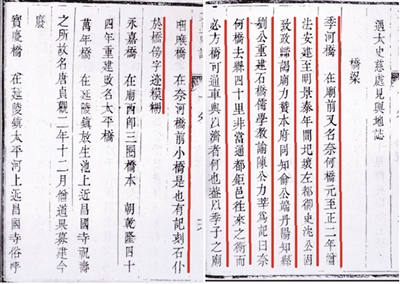 遇太史慈處見輿地志
橋梁
季河橋 在廟前又名奈何橋元至正二年僧
法安建至明景泰年間圮壞左都御史沈公固
致政歸謁廟力贊本府同知俞公端丹陽知縣
劉公重建石橋儒學教諭陳公力莘為記曰奈
何橋去縣四十里非當通都鉅邑往來之衝而
必方橋可通車輿以濟者何也蓋以季子之廟
橋 在奈河橋前小橋是也有記刻石仆
於橋傍字迹模糊
永嘉橋 在廟西卽三圈橋本 朝乾隆四十
四年重建改名太平橋
萬年橋 在延陵鎮放生池上近昌國寺祝壽
之所故名唐貞觀二年十二月僧道果募建今
廢
寶慶橋 在延陵鎮太平河上近昌國寺俗呼